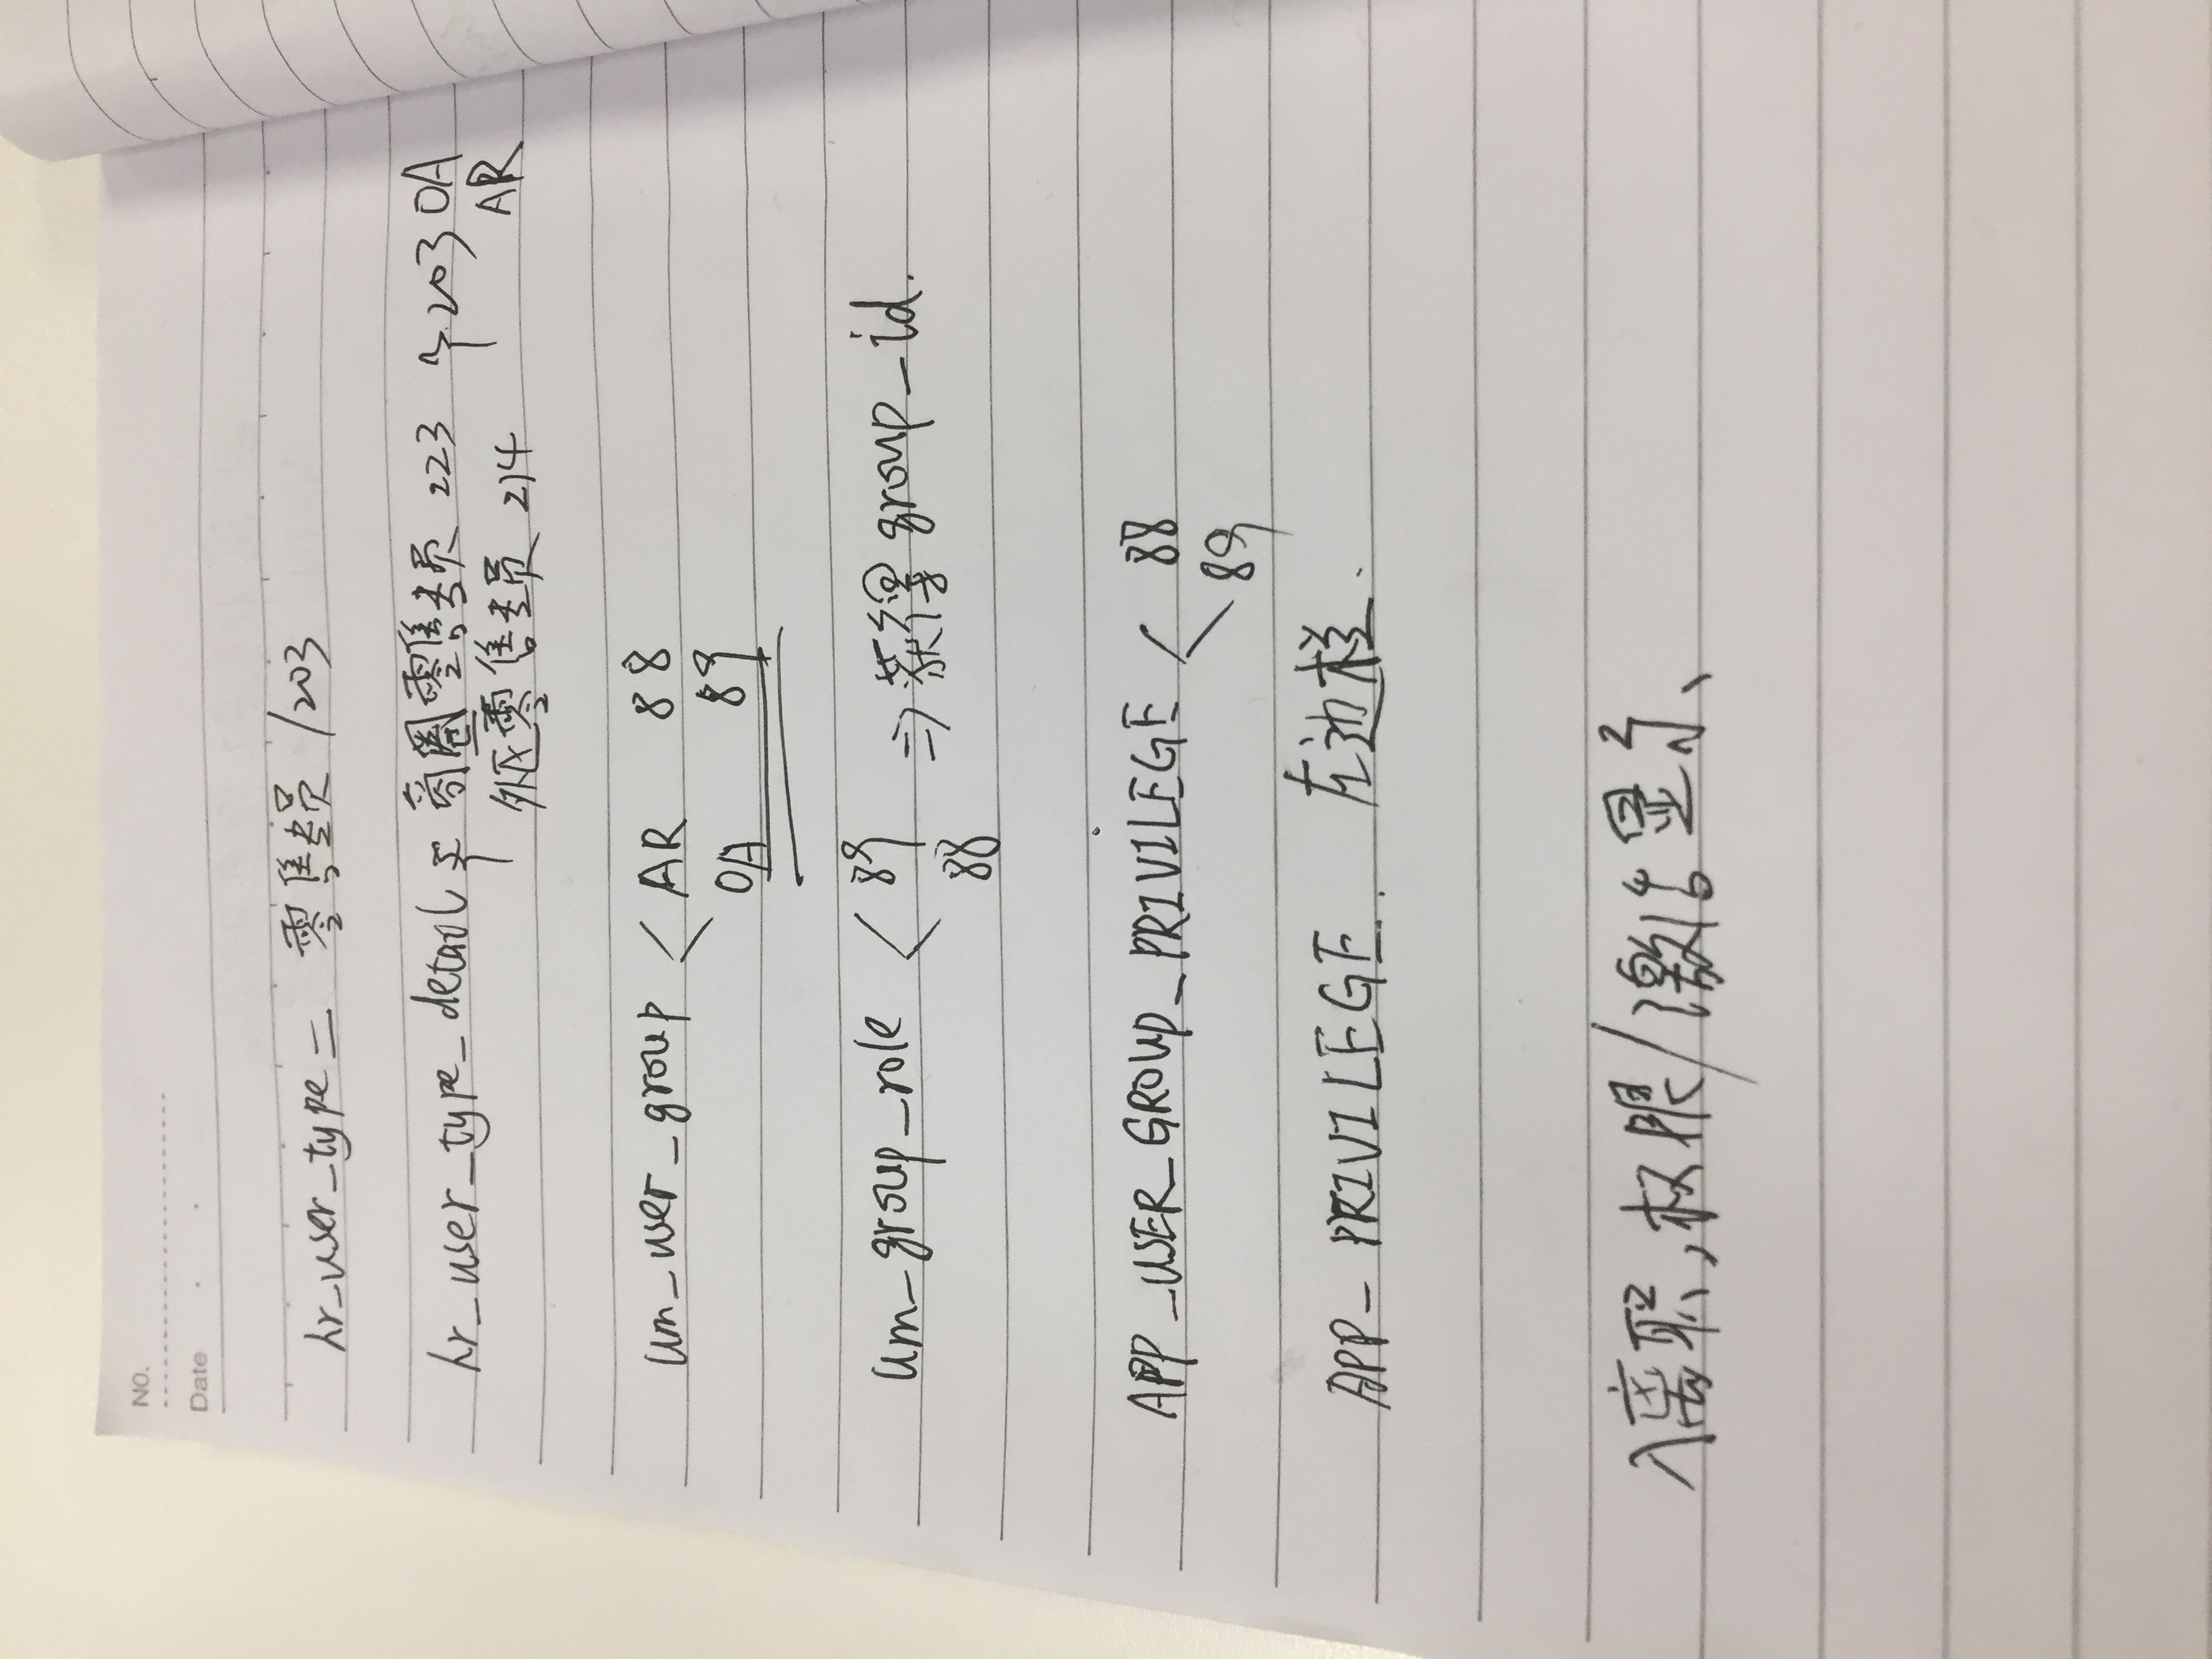 NO.
Date
hr_user_type = 零售专员 /203
hr_user_type_detail { 商圈零售专员 223 } 203 OA
外区零售专员 214 AR
um_user_group < AR 88
OA 89
um_group_role < 89
88 => 获得 group_id.
APP_USER_GROUP_PRIVILEGE < 88
89
APP_PRIVILEGE. 左边栏.
入离职,权限/激活显示、